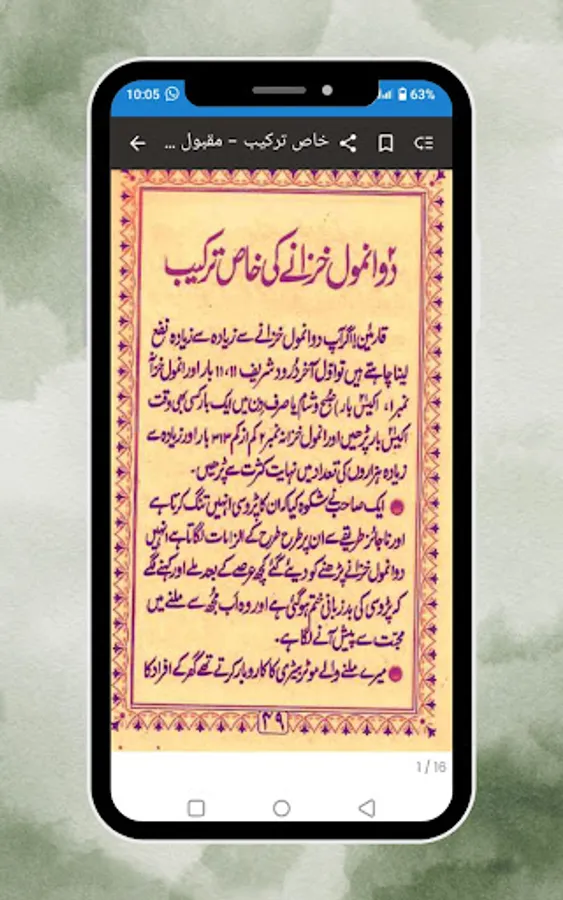 10:05 63%
خاص ترکیب - مقبول ...
دو انمول خزانے کی خاص ترکیب
قارئین! اگر آپ دو انمول خزانے سے زیادہ سے زیادہ نفع
لینا چاہتے ہیں تو اوّل آخر درُود شریف ۱۱،۱۱ بار اور انمول خزانہ
نمبر ۱، اکیس بار) صُبح و شام یا صرف دِن میں ایک بار کسی بھی وقت
اکیس بار پڑھیں اور انمول خزانہ نمبر ۲ کم از کم ۳۱۳ بار اور زیادہ سے
زیادہ ہزاروں کی تعداد میں نہایت کثرت سے پڑھیں۔
ایک صاحب نے شکوہ کیا کہ ان کا پڑوسی انہیں تنگ کرتا ہے
اور ناجائز طریقے سے ان پر طرح طرح کے الزامات لگاتا ہے انہیں
دو انمول خزانے پڑھنے کو دیئے گئے کچھ عرصے کے بعد ملے اور کہنے لگے
کہ پڑوسی کی بدزبانی ختم ہو گئی ہے اور وہ اَب مُجھ سے ملنے میں
محبّت سے پیش آنے لگا ہے۔
میرے ملنے والے موٹر بیٹری کا کاروبار کرتے تھے گھر کے افراد کا
۴۹
1 / 16